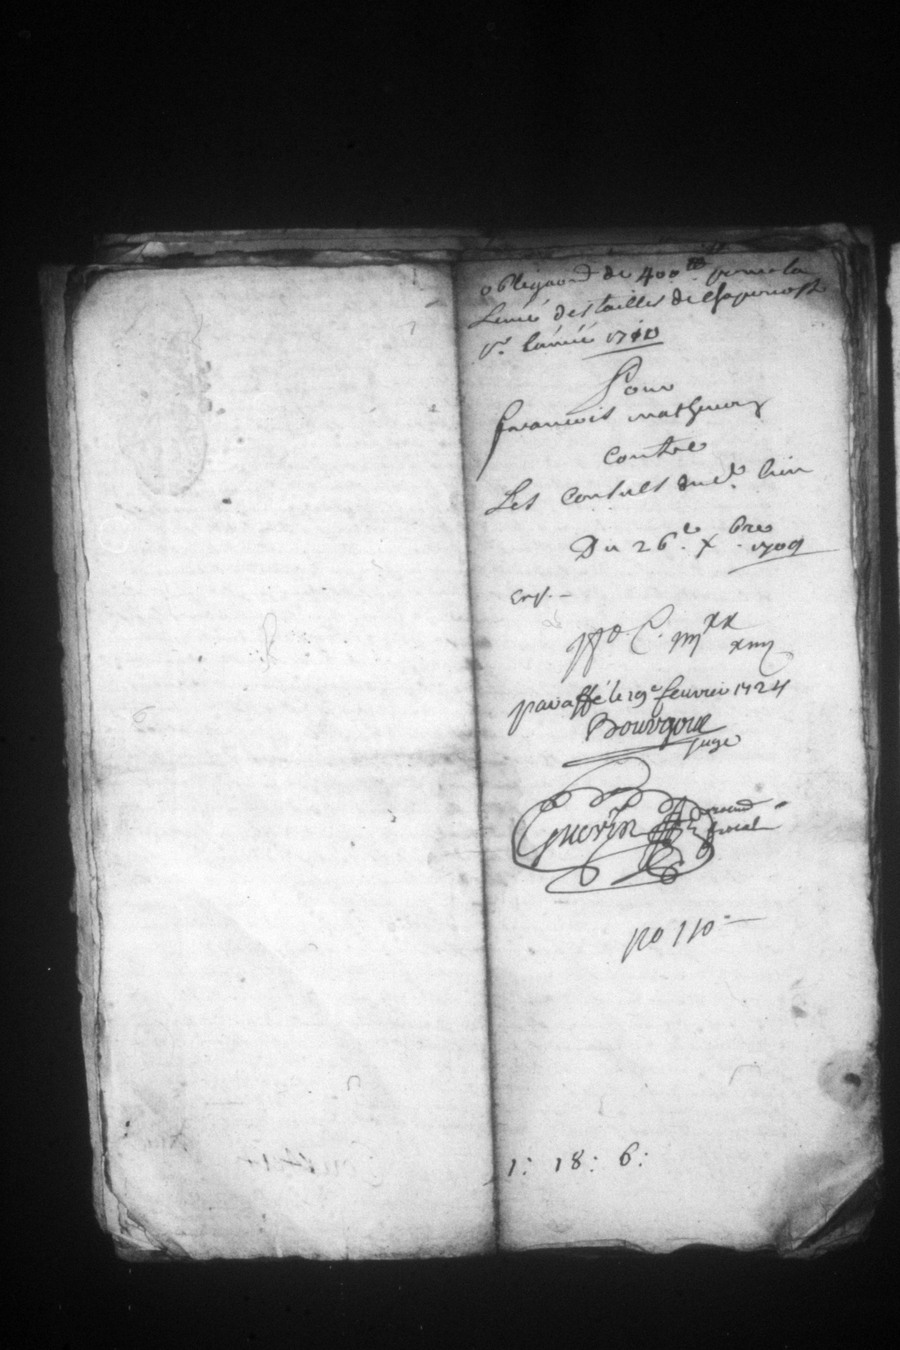 obligaon de 400 ## pour la
Levée des tailles de
pr. lannée 1710
Pour
francois mathieu
contre
Les Consuls dud. lieu
Du 26e. Xbre 1709
exp. -
C. iiijxx
xiiij
paraffé le 19e feuvrier 1724
Bourgoux
juge
Guerin
fiscal
no 110 -
1: 18: 6: